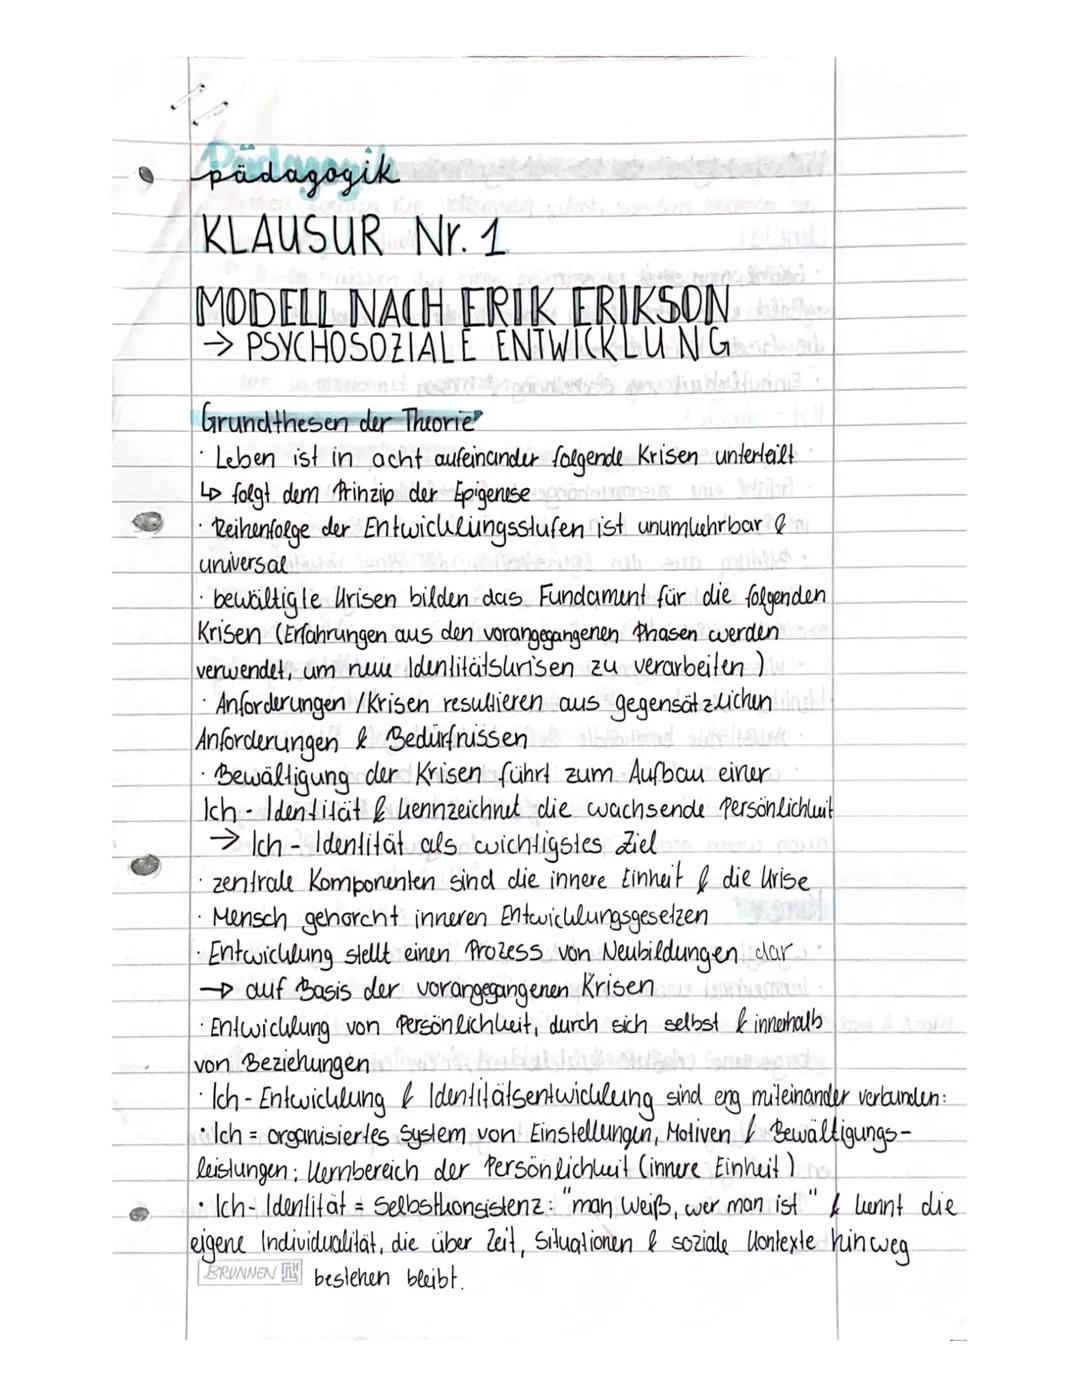 Pädagogik
pädagogik
KLAUSUR Nr. 1
MODELL NACH ERIK ERIKSON
→ PSYCHOSOZIALE ENTWICKLUNG
Grundthesen der Theorie
· Leben ist in acht aufeinander folgende Krisen unterteilt
↳ folgt dem Prinzip der Epigenese
· Reihenfolge der Entwicklungsstufen ist unumkehrbar &
universal
· bewältigte Krisen bilden das Fundament für die folgenden
Krisen (Erfahrungen aus den vorangegangenen Phasen werden
verwendet, um neue Identitätskrisen zu verarbeiten)
· Anforderungen / Krisen resultieren aus gegensätzlichen
Anforderungen & Bedürfnissen
· Bewältigung der Krisen führt zum Aufbau einer
Ich - Identität & kennzeichnet die wachsende Persönlichkeit
→ Ich - Identität als wichtigstes Ziel
· zentrale Komponenten sind die innere Einheit & die Krise
· Mensch gehorcht inneren Entwicklungsgesetzen
· Entwicklung stellt einen Prozess von Neubildungen dar
→ auf Basis der vorangegangenen Krisen
· Entwicklung von Persönlichkeit, durch sich selbst & innerhalb
von Beziehungen
· Ich - Entwicklung & Identitätsentwicklung sind eng miteinander verbunden:
• Ich = organisiertes System von Einstellungen, Motiven & Bewältigungs-
leistungen; Kernbereich der Persönlichkeit (innere Einheit)
• Ich - Identität = Selbstkonsistenz: "man weiß, wer man ist" & kennt die
eigene Individualität, die über Zeit, Situationen & soziale Kontexte hinweg
BRUNNEN bestehen bleibt.